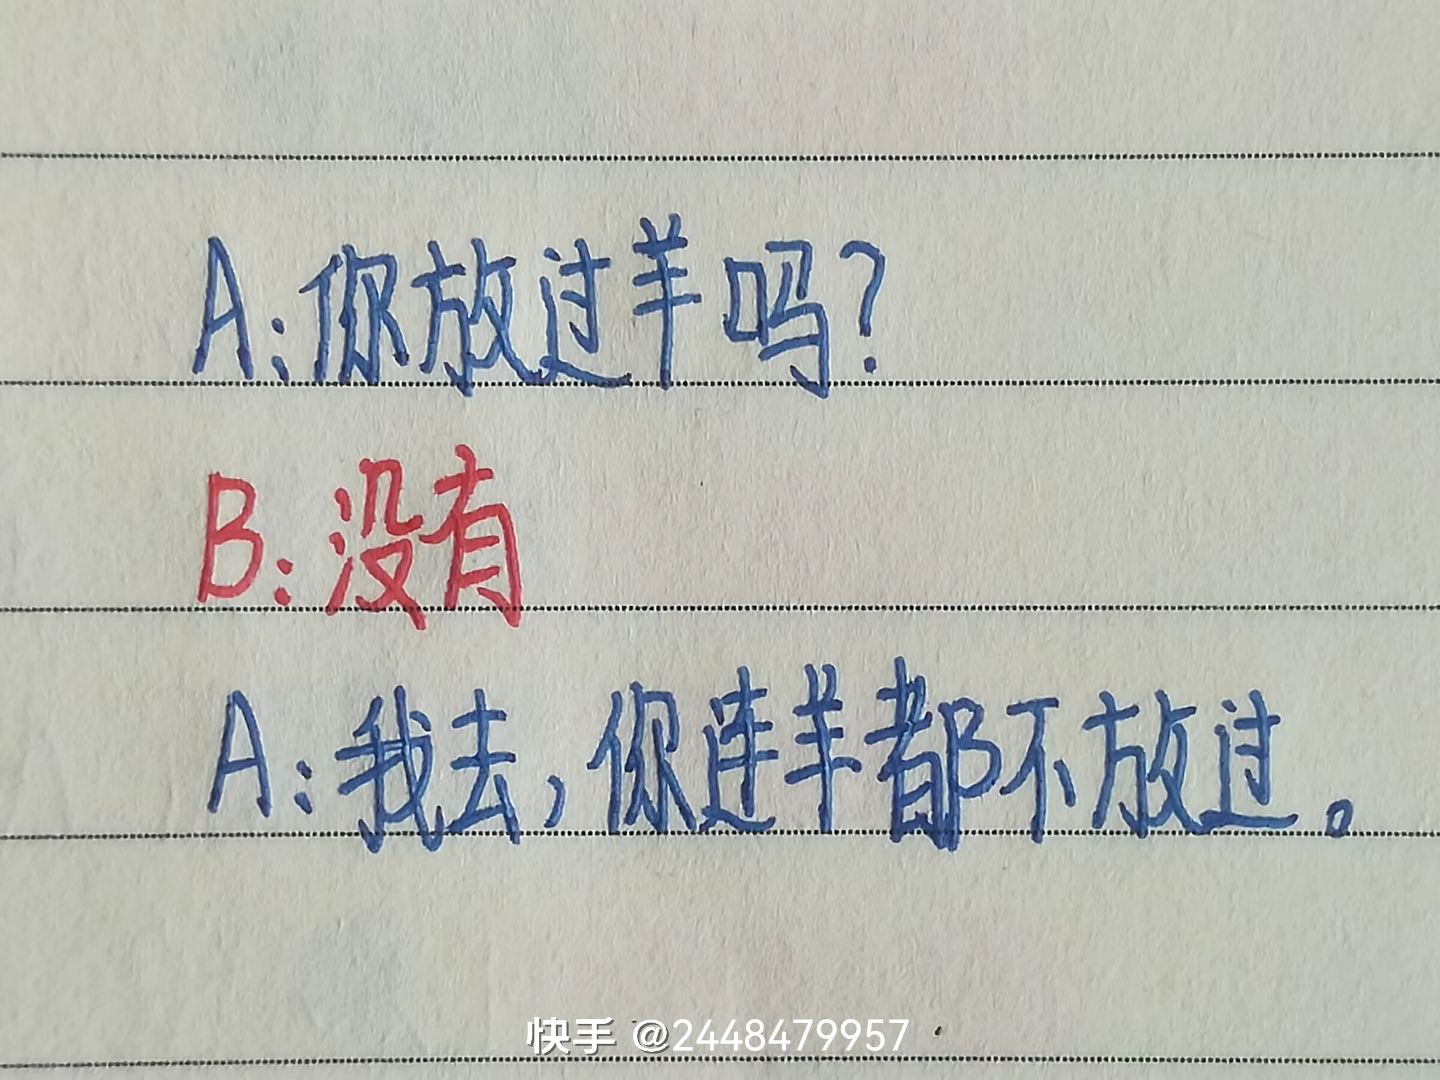 A:你放过羊吗?
B:没有
A:我去,你连羊都不放过。
快手 @2448479957